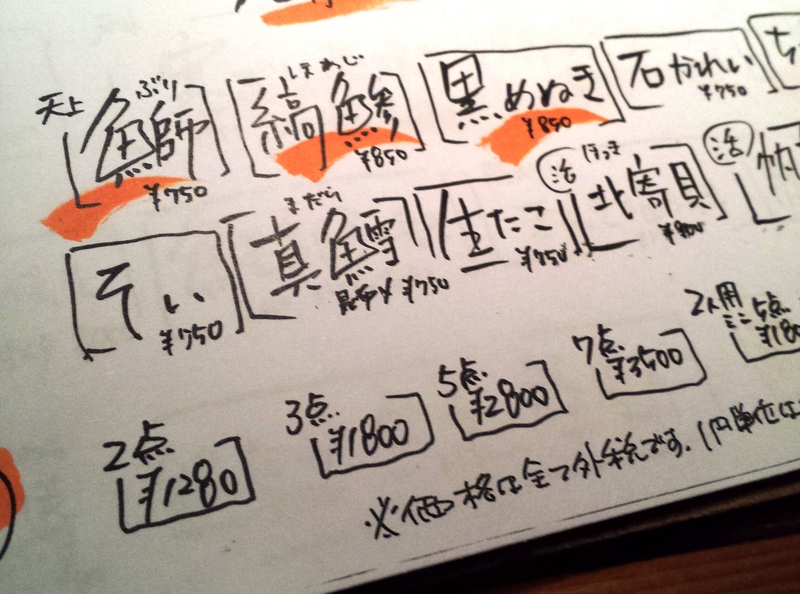 天上 鰤 ぶり ¥750
縞鯵 しまあじ ¥850
黒めぬき ¥850
石かれい ¥750
そい ¥750
真鱈 まだら 昆布〆 ¥750
生たこ ¥750
活 北寄貝 ほっき ¥900
活
2点 ¥1280
3点 ¥1800
5点 ¥2800
7点 ¥3500
2人用 ミニ5点
※価格は全て外税です。1円単位は